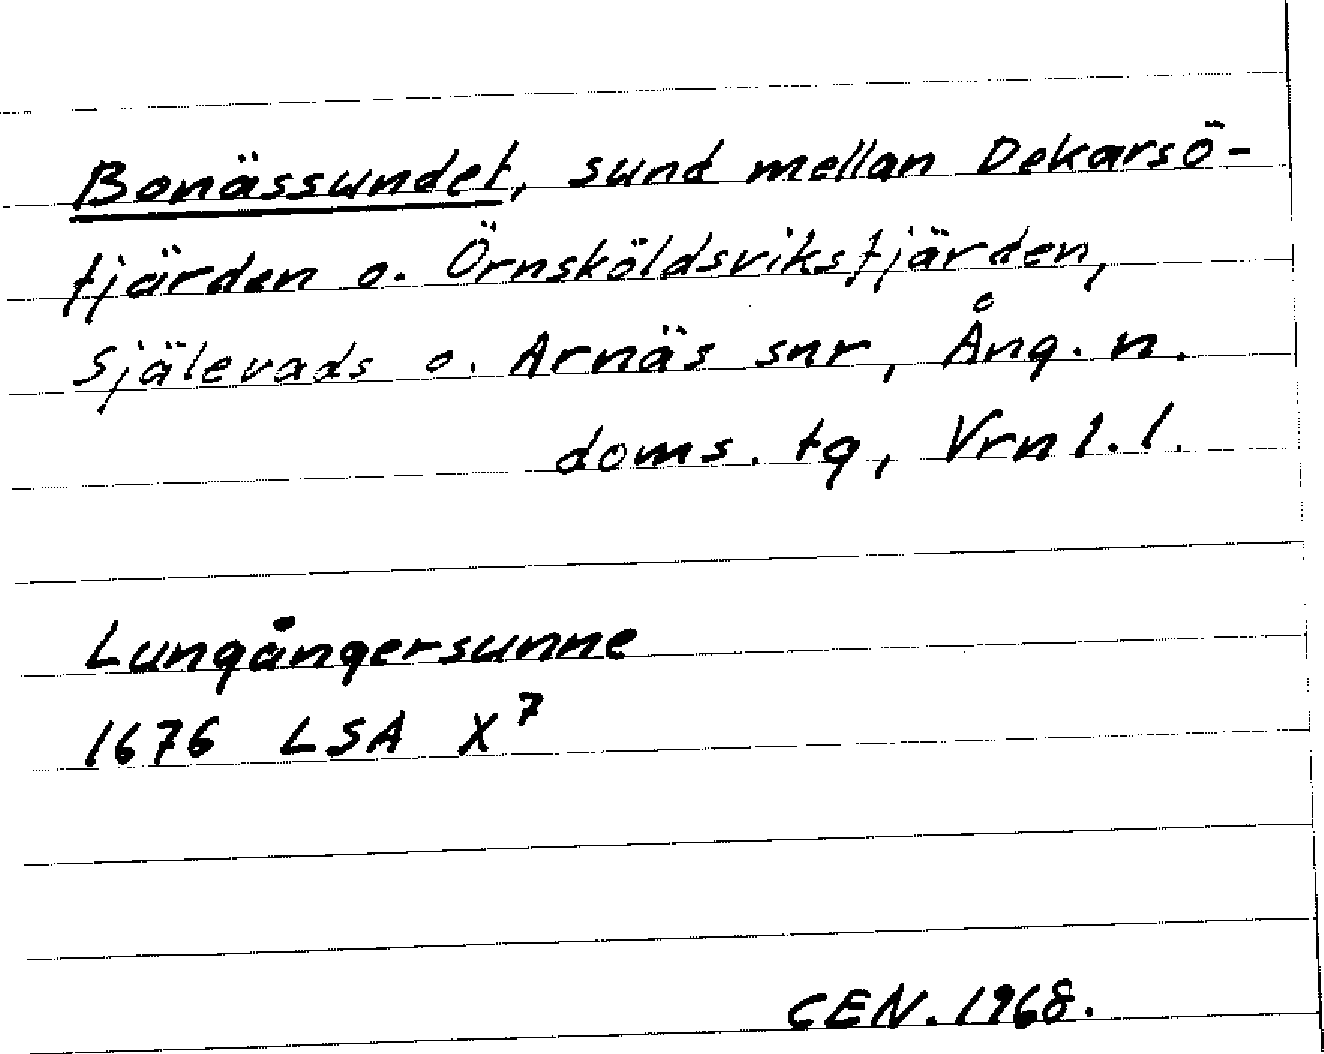 Bonässundet, sund mellan Dekarsö-
fjärden o. Örnsköldsviksfjärden,
Själevads o. Arnäs snr, Ång. n.
doms. tg, Vrnl. l.
Lungångersunne
1676 LSA X⁷
CEN. 1968.